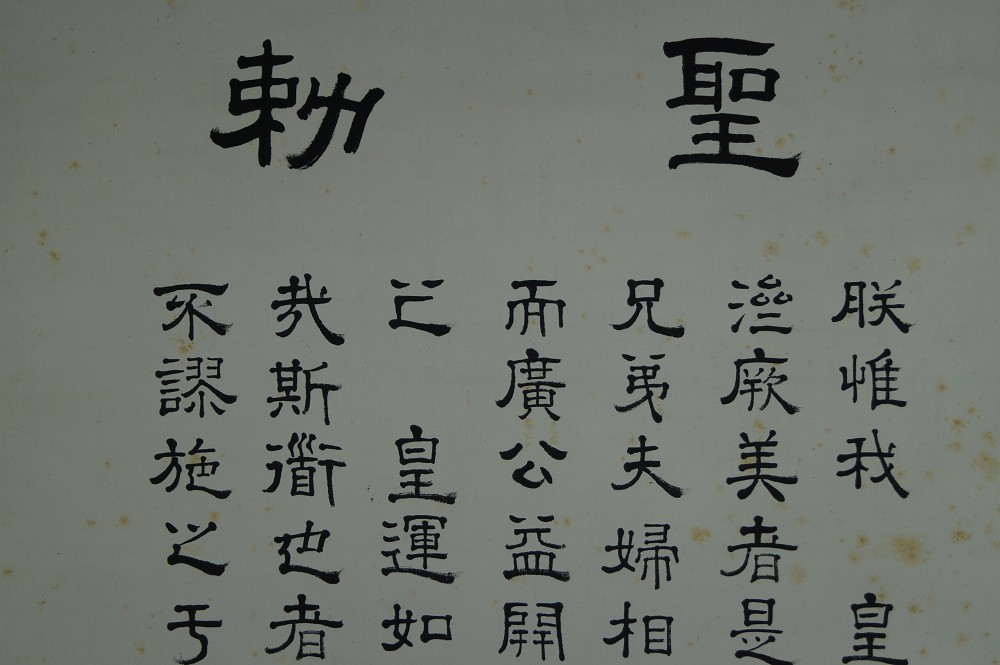 聖勅
朕惟我　皇
濟厥美者是
兄弟夫婦相
而廣公益開
之　皇運如
哉斯衟也者
不謬施之于